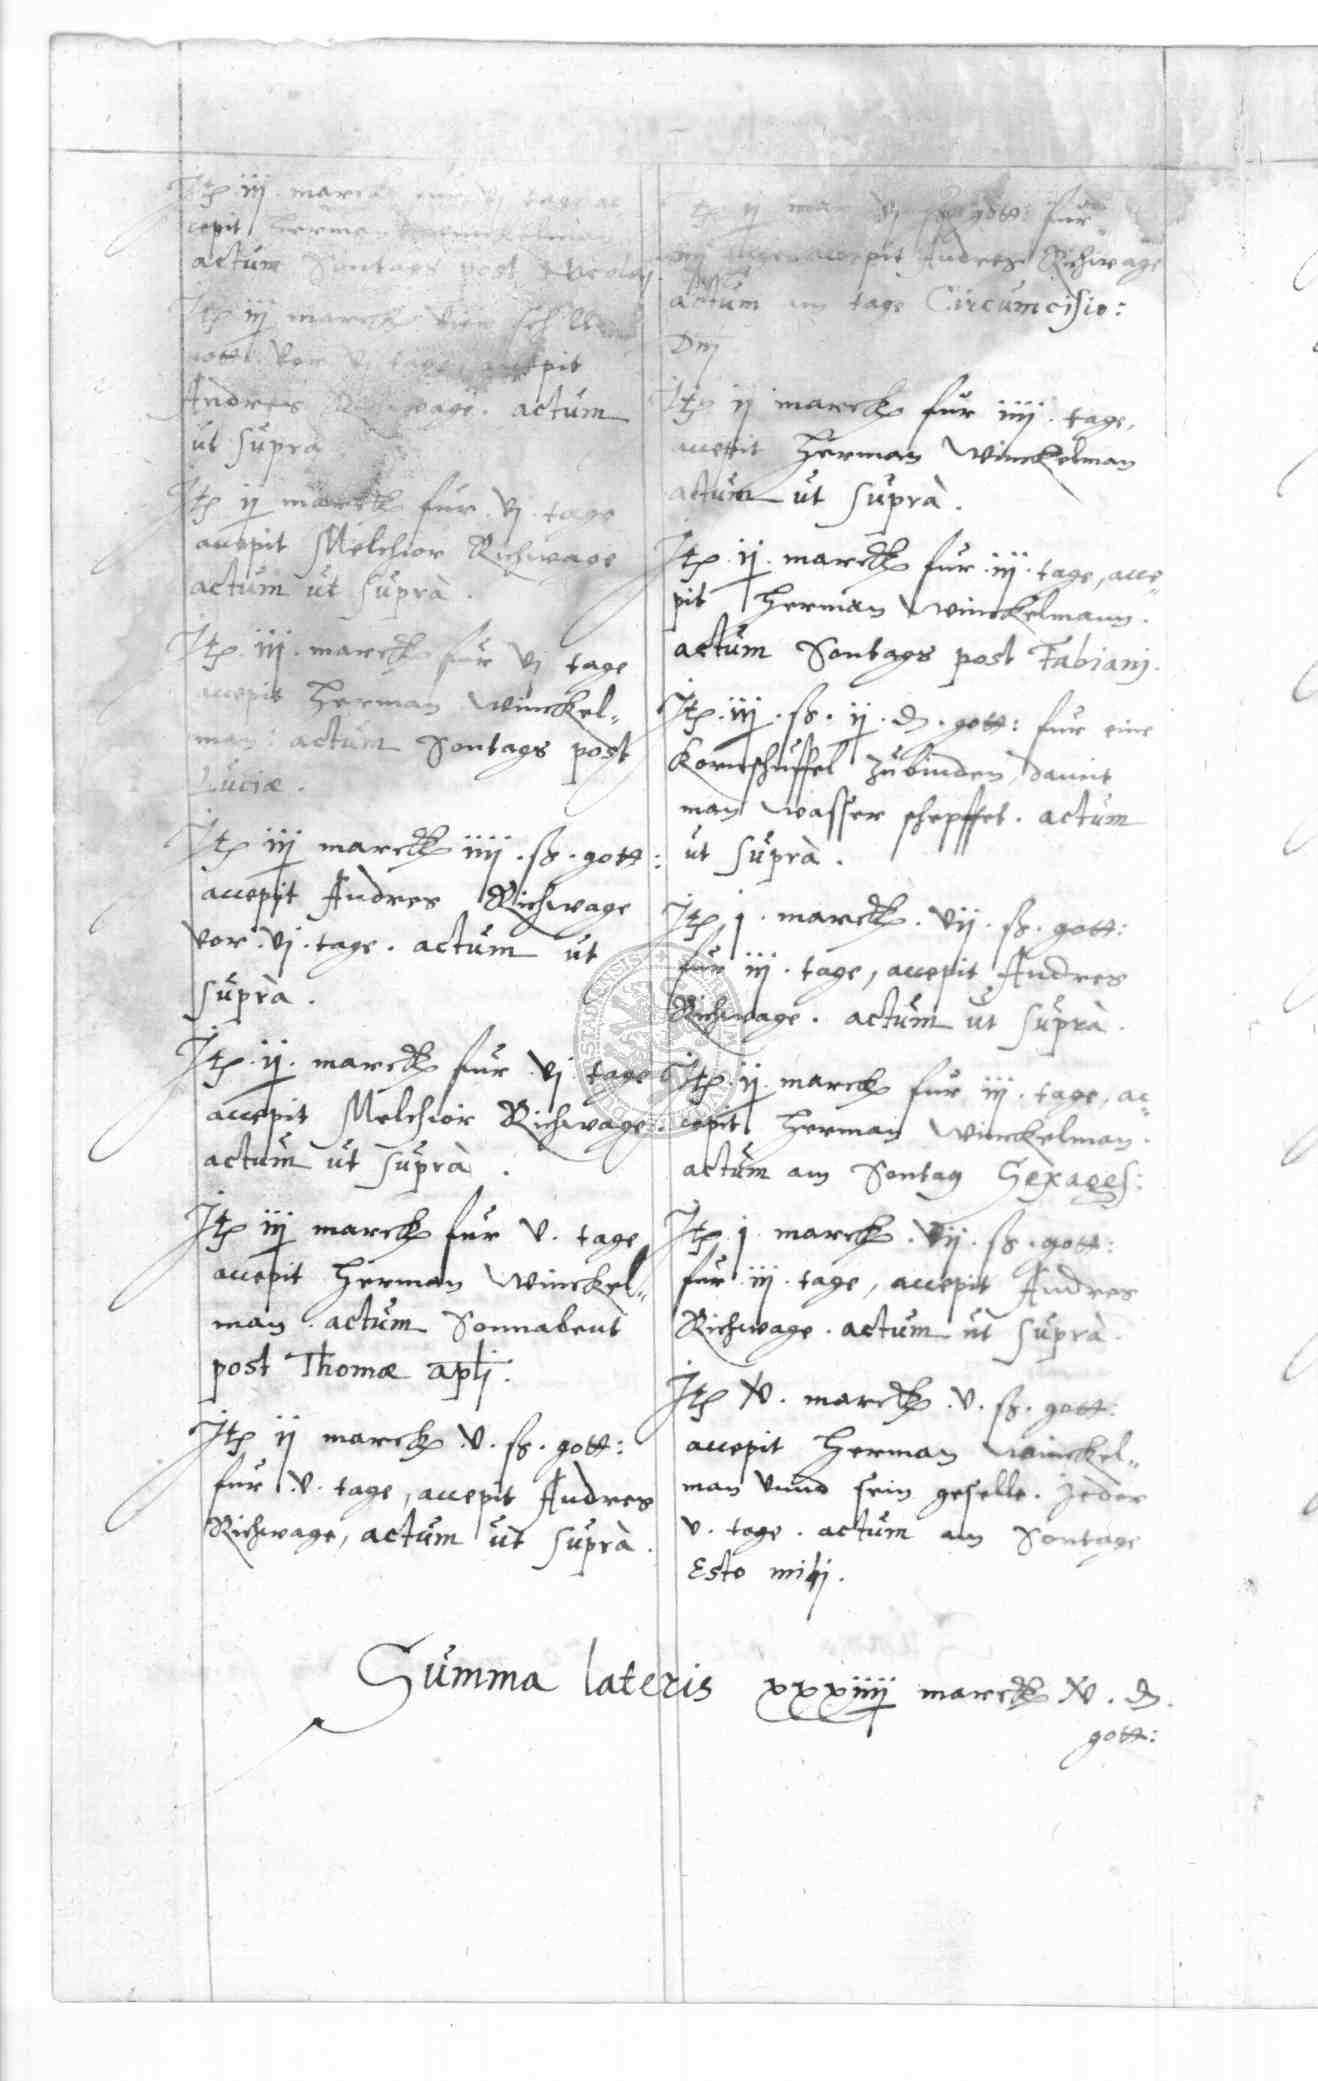 Itē iij marck fur vj tage ac
cepit Herman Winckelman
actum Sontags post Nicolaj
Itē iij marck vier schill
gott: vor vj tage, accepit
Andres Richwage. actum
ut suprà
Itē ij marck fur vj tage
accepit Melchior Richwage
actum ut suprà.
Itē iij marck fur vj tage
accepit Herman Winckel„
man: actum Sontags post
Luciæ.
Itē iij marck iiij. ß. gott:
accepit Andres Richwage
vor vj. tage. actum ut
suprà.
Itē ij. marck fur vj tage
accepit Melchior Richwage.
actum ut suprà.
Itē iij marck fur v. tage
accepit Herman Winckel„
man. actum Sonnabent
post Thomæ apli:
Itē ij marck v. ß. gott:
fur v. tage, accepit Andres
Richwage, actum ut suprà.
Itē ij mar gott: fur
iiij tage accepit Andres Richwage
actum am tage Circumcisio:
Dnj
Itē ij marck fur iiij. tage,
accepit Herman Winckelman
actum ut suprà.
Itē ij. marck fur iij. tage, acce„
pit Herman Winckelmann.
actum Sontags post Fabianj.
Itē iij. ß. ij. ₰. gott: fur eine
Kornschuffel zubinden damit
man wasser schepffet. actum
ut suprà.
Itē j. marck. vij. ß. gott:
fur iij. tage, accepit Andres
Richwage. actum ut suprà.
Itē ij. marck fur iij. tage, ac„
cepit Herman Winckelman.
actum am Sontag Sexages:
Itē j. marck. vij. ß. gott:
fur iij. tage, accepit Andres
Richwage. actum ut suprà.
Itē iv. marck v. ß. gott:
accepit Herman Winckel„
man vnnd sein geselle. Jeder
v. tage. actum am Sontage
Esto mihj.
Summa lateris xxxiiij marck iv. ₰.
gott: